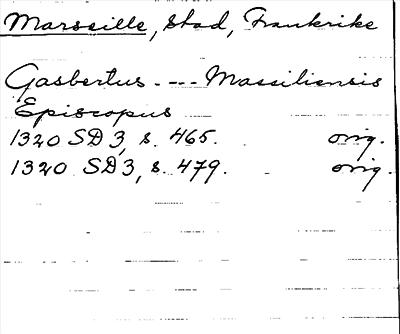 Marseille, stad, Frankrike
Gasbertus. --- Massiliensis
Episcopus
1320 SD 3, s. 465. orig.
1320 SD 3, s. 479. orig.